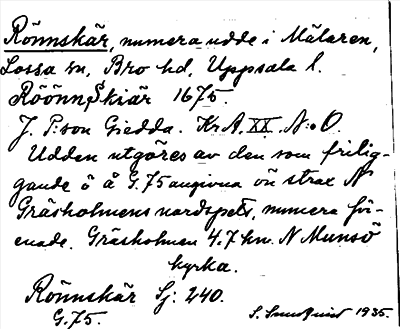 Rönnskär, numera udde i Mälaren,
Lossa sn, Bro hd, Uppsala l.
RöönnSkiär 1675.
J. P:son Giedda. KrA. XX. N:o O.
Udden utgöres av den som frilig-
gande ö å G.75 angivna ön strax N
Gräsholmens nordspets, numera för-
enade. Gräsholmen 4.7 km N Munsö
kyrka.
Rönnskär Sj: 240.
G.75.
S. Sundquist 1935.